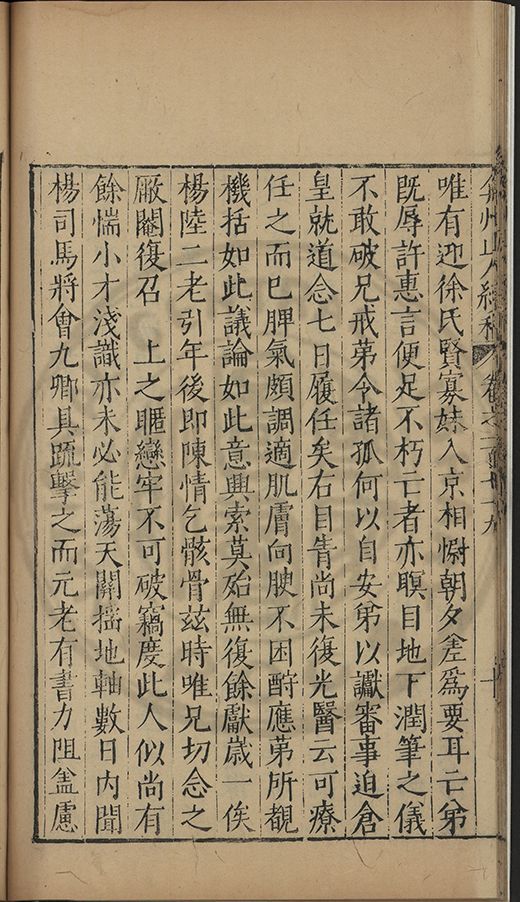 弇州山人續稿 卷之一百七十九 十
唯有迎徐氏賢寡妹入京相慰朝夕差爲要耳亡弟
既辱許惠言便足不朽亡者亦瞑目地下潤筆之儀
不敢破兄戒第令諸孤何以自安弟以讞審事迫倉
皇就道念七日履任矣右目眚尚未復光醫云可療
任之而已脾氣頗調適肌膚向腴不困酧應第所覩
機括如此議論如此意興索莫殆無復餘獻歲一俟
楊陸二老引年後即陳情乞骸骨茲時唯兄切念之
厰閹復召 上之暱戀牢不可破竊度此人似尚有
餘惴小才淺識亦未必能蕩天關揺地軸數日內聞
楊司馬將會九卿具䟽擊之而元老有書力阻盖慮